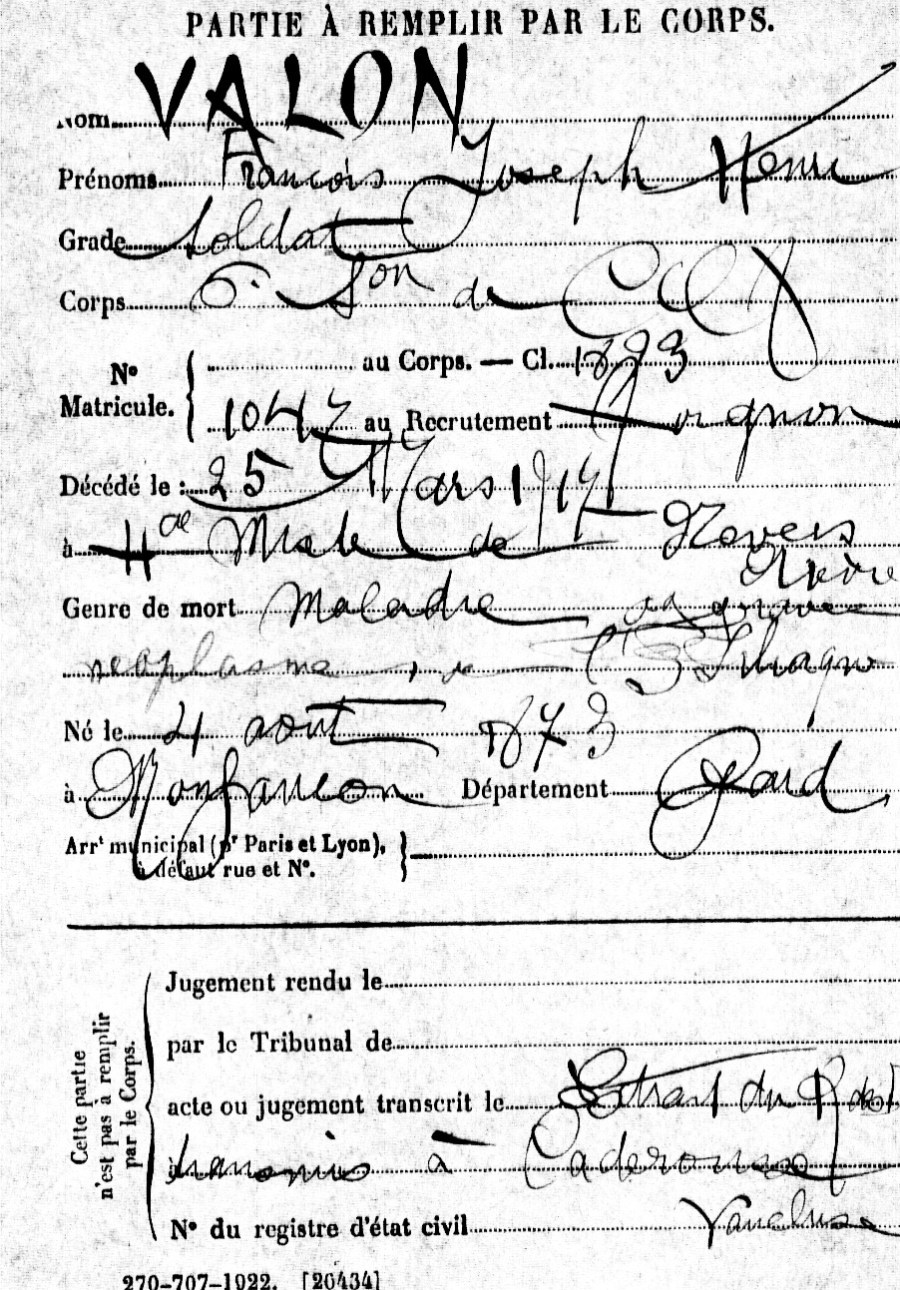 PARTIE À REMPLIR PAR LE CORPS.
Nom VALON
Prénoms François Joseph Henri
Grade Soldat
Corps 6e Son de
Nº Matricule. { au Corps. — Cl. 1893
1047 au Recrutement Avignon
Décédé le : 25 Mars 1917
à Hal Mixte de Nevers
Nièvre
Genre de mort Maladie aggravée
néoplasme
Né le 4 août 1873
à Monfaucon Département Gard
Arrt municipal (pr Paris et Lyon), à défaut rue et Nº. }
Cette partie n'est pas à remplir par le Corps.
Jugement rendu le
par le Tribunal de
acte ou jugement transcrit le Extrait du R de D
à transmis à Caderousse
Nº du registre d'état civil Vaucluse
270-707-1922. [26434]